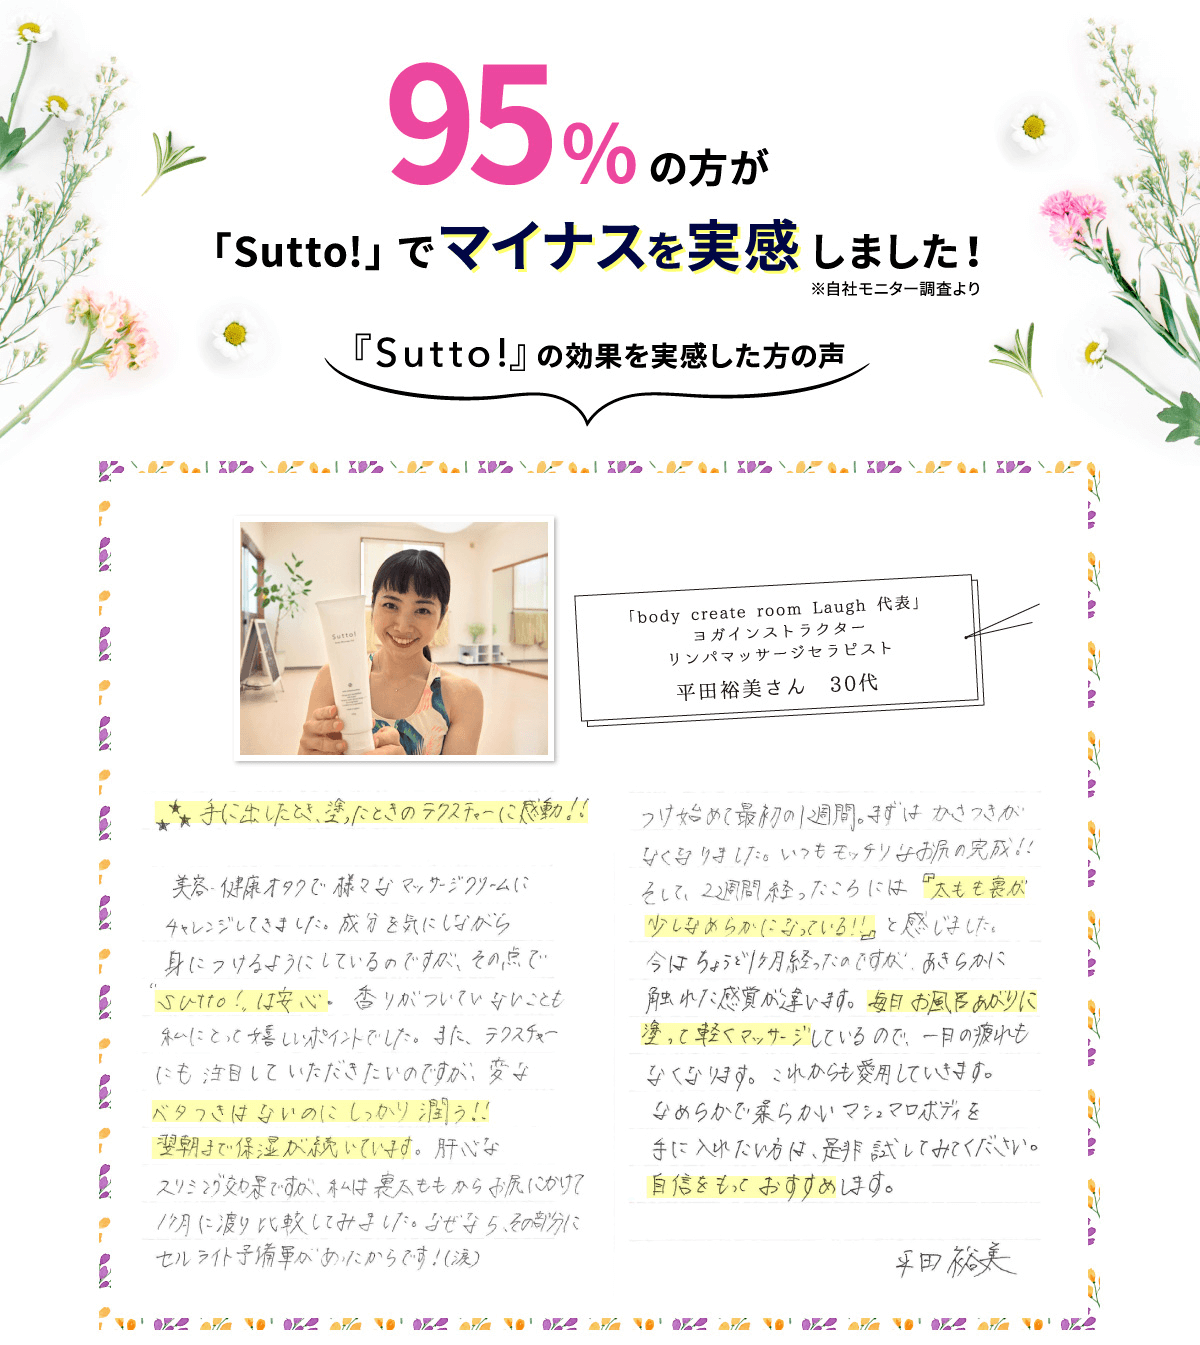 95%の方が
「Sutto!」でマイナスを実感しました！
※自社モニター調査より
『Sutto!』の効果を実感した方の声
Sutto!
「body create room Laugh 代表」
ヨガインストラクター
リンパマッサージセラピスト
平田裕美さん 30代
手に出したとき、塗ったときのテクスチャーに感動!!
美容・健康オタクで様々なマッサージクリームに
チャレンジしてきました。成分を気にしながら
身につけるようにしているのですが、その点で
"Sutto!"は安心。香りがついていないことも
私にとって嬉しいポイントでした。また、テクスチャー
にも注目していただきたいのですが、変な
ベタつきはないのにしっかり潤う!!
翌朝まで保湿が続いています。肝心な
スリミング効果ですが、私は裏太ももからお尻にかけて
1ヶ月に渡り比較してみました。なぜなら、その部分に
セルライト予備軍があったからです!(涙)
つけ始めて最初の1週間。まずはかさつきが
なくなりました。いつもモッチリなお尻の完成!!
そして、2週間経ったころには『太もも裏が
少しなめらかになっている!!』と感じました。
今はちょうど1ヶ月経ったのですが、あきらかに
触れた感覚が違います。毎日お風呂あがりに
塗って軽くマッサージしているので、一日の疲れも
なくなります。これからも愛用していきます。
なめらかで柔らかいマシュマロボディを
手に入れたい方は、是非試してみてください。
自信をもっておすすめします。
平田裕美